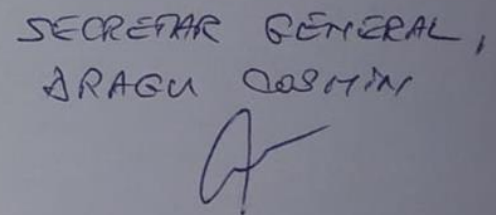 SECRETAR GENERAL,
DRAGU COSMIN